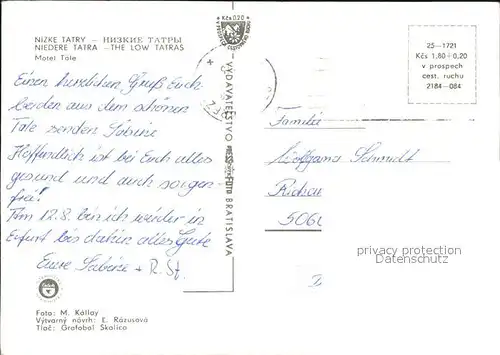 NÍZKE TATRY — НИЗКИЕ ТАТРЫ
NIEDERE TATRA — THE LOW TATRAS
Motel Tále
Einen herzlichen Gruß Euch
beiden aus dem schönen
Tále senden Sabine
Hoffendlich ist bei Euch alles
gesund und auch sorgen-
frei!
Am 12.8. bin ich wieder in
Erfurt bis dahin alles Gute
Eure Sabine + R. St.
Foto: M. Kállay
Výtvarný návrh: E. Rázusová
Tlač: Grafobal Skalica
Kčs 0,20
VYDAVATEĽSTVO
BRATISLAVA
25—1721
Kčs 1,80+0,20
v prospech
cest. ruchu
2184-084
Familie
Wolfgang Schmidt
506
privacy protection
Datenschutz